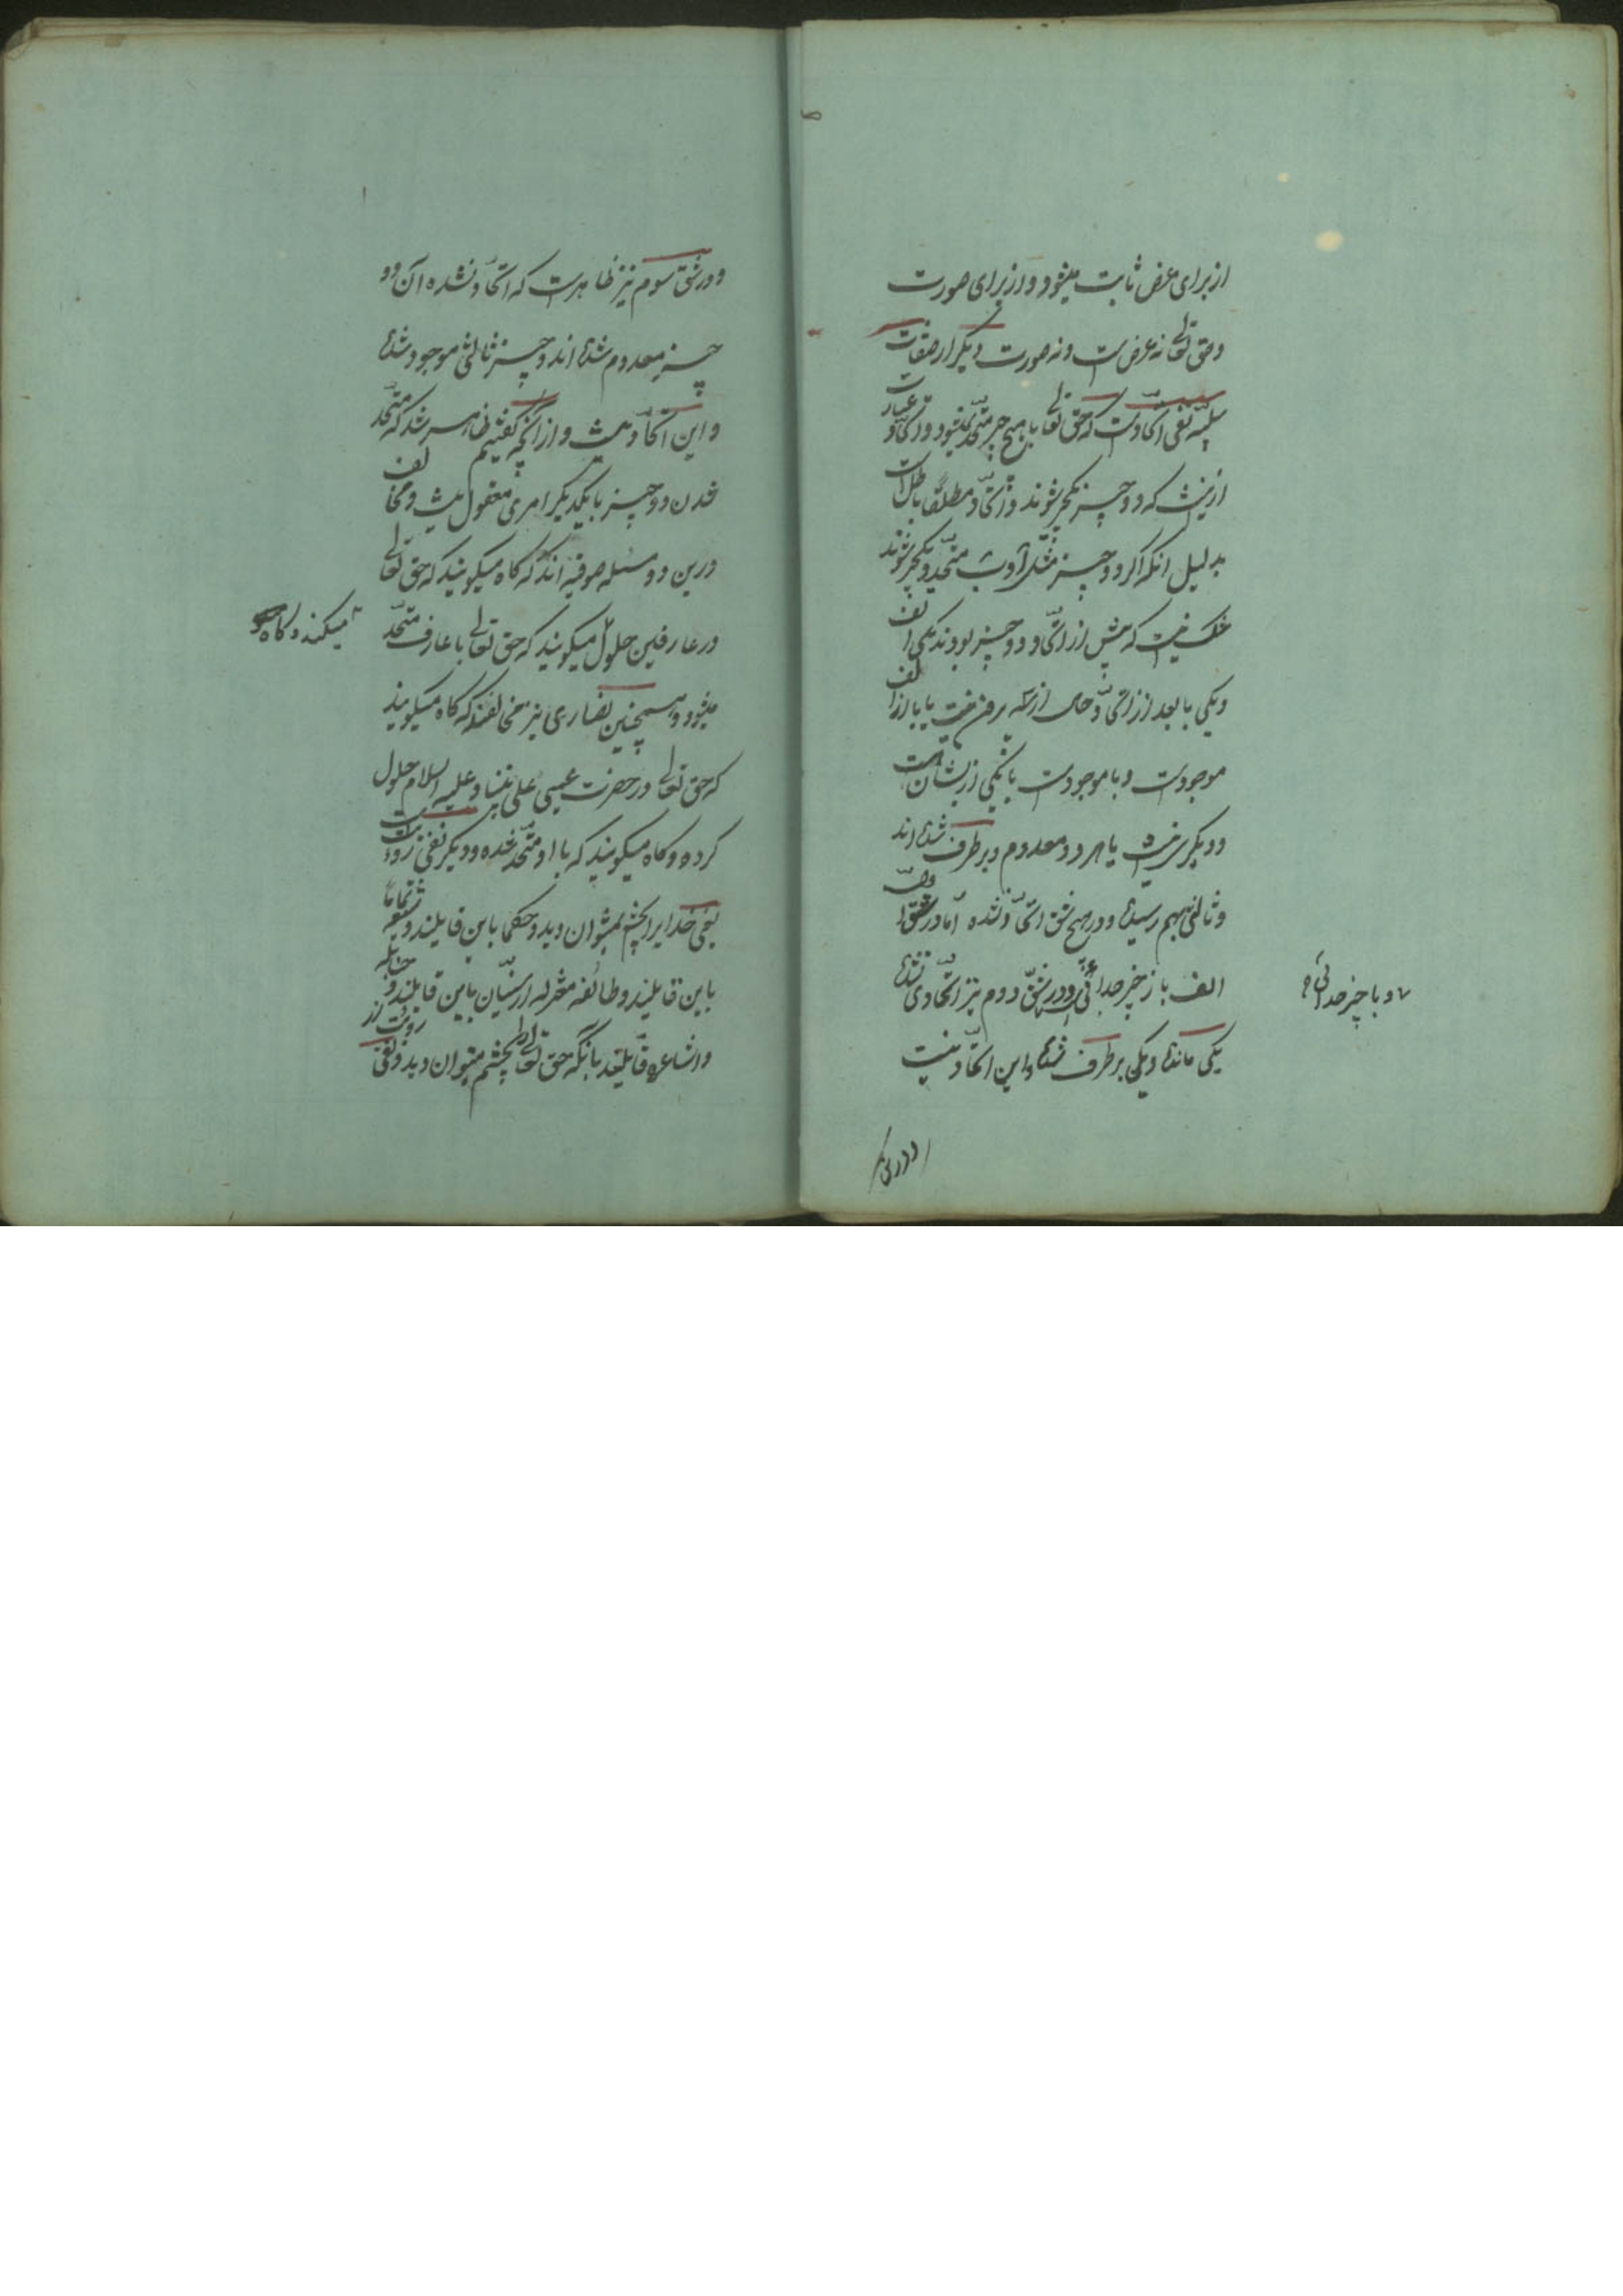 از برای عرض ثابت میشود و از برای صورت
و حق تعالی نه عرض است و نه صورت دیگر از صفات
سلبیه نفی اتحاد است که حق تعالی با هیچ چیز متحد نمیشود و اتحاد عبارت
ازینست که دو چیز یکچیز شوند و اتحاد مطلقا باطل است
بدلیل انکه اکر دو چیز مثل آ و ب متحد و یکچیز شوند
شک نیست که پیش از اتحاد دو چیز بودند یکی الف
و یکی با بعد از اتحاد حال از سه برون نیست یا با الف
موجود است و با موجود است یا یکی ازیشان هست
و دیکری نیست یا هر دو معدوم و برطرف شده اند
و ثالثی بهم رسیده و در هیچ شق اتحاد نشده اما در شق اول
الف باز چیز جدائی است و در شق دوم نیز اتحادی نشده
۷ و با چیز جدائی
یکی مانده و یکی برطرف شده و این اتحاد نیست
و در شق
و در شق سوم نیز ظاهر است که اتحاد نشده آن دو
چیز معدوم شده اند و چیز ثالثی موجود شده
و این اتحاد نیست و از آنچه گفتیم ظاهر شد که متحد
شدن دو چیز با یکدیگر امری معقول نیست و مخالف
درین دو مسئله صوفیه اند که کاه میکویند که حق تعالی
در عارفین حلول میکویند که حق تعالی با عارف متحد
میکند و کاه
میشود و همچنین نصاری نیز مخالفند که کاه میکویند
که حق تعالی در حضرت عیسی علی نبینا و علیه السلام حلول
کرده و کاه میکویند که با او متحد شده و دیکر نفی رویت
یعنی خدایرا بچشم نمیتوان دید و حکما باین قایلند و شیعه تماما
باین قایلند و طائفه معتزله از سنیان باین قایلند و حنابله
و اشاعره قایلند بانکه حق تعالی را بچشم میتوان دید و نفی رویت از